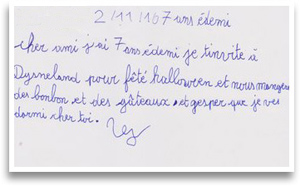 2/11/10 7 ans édemi
cher ami j'ai 7 ans édemi je t'invite à
Dysneland pour fêté hallowen et nous mangera
des bonbon et des gâteaux. et gesper que je ves
dormi cher toi.